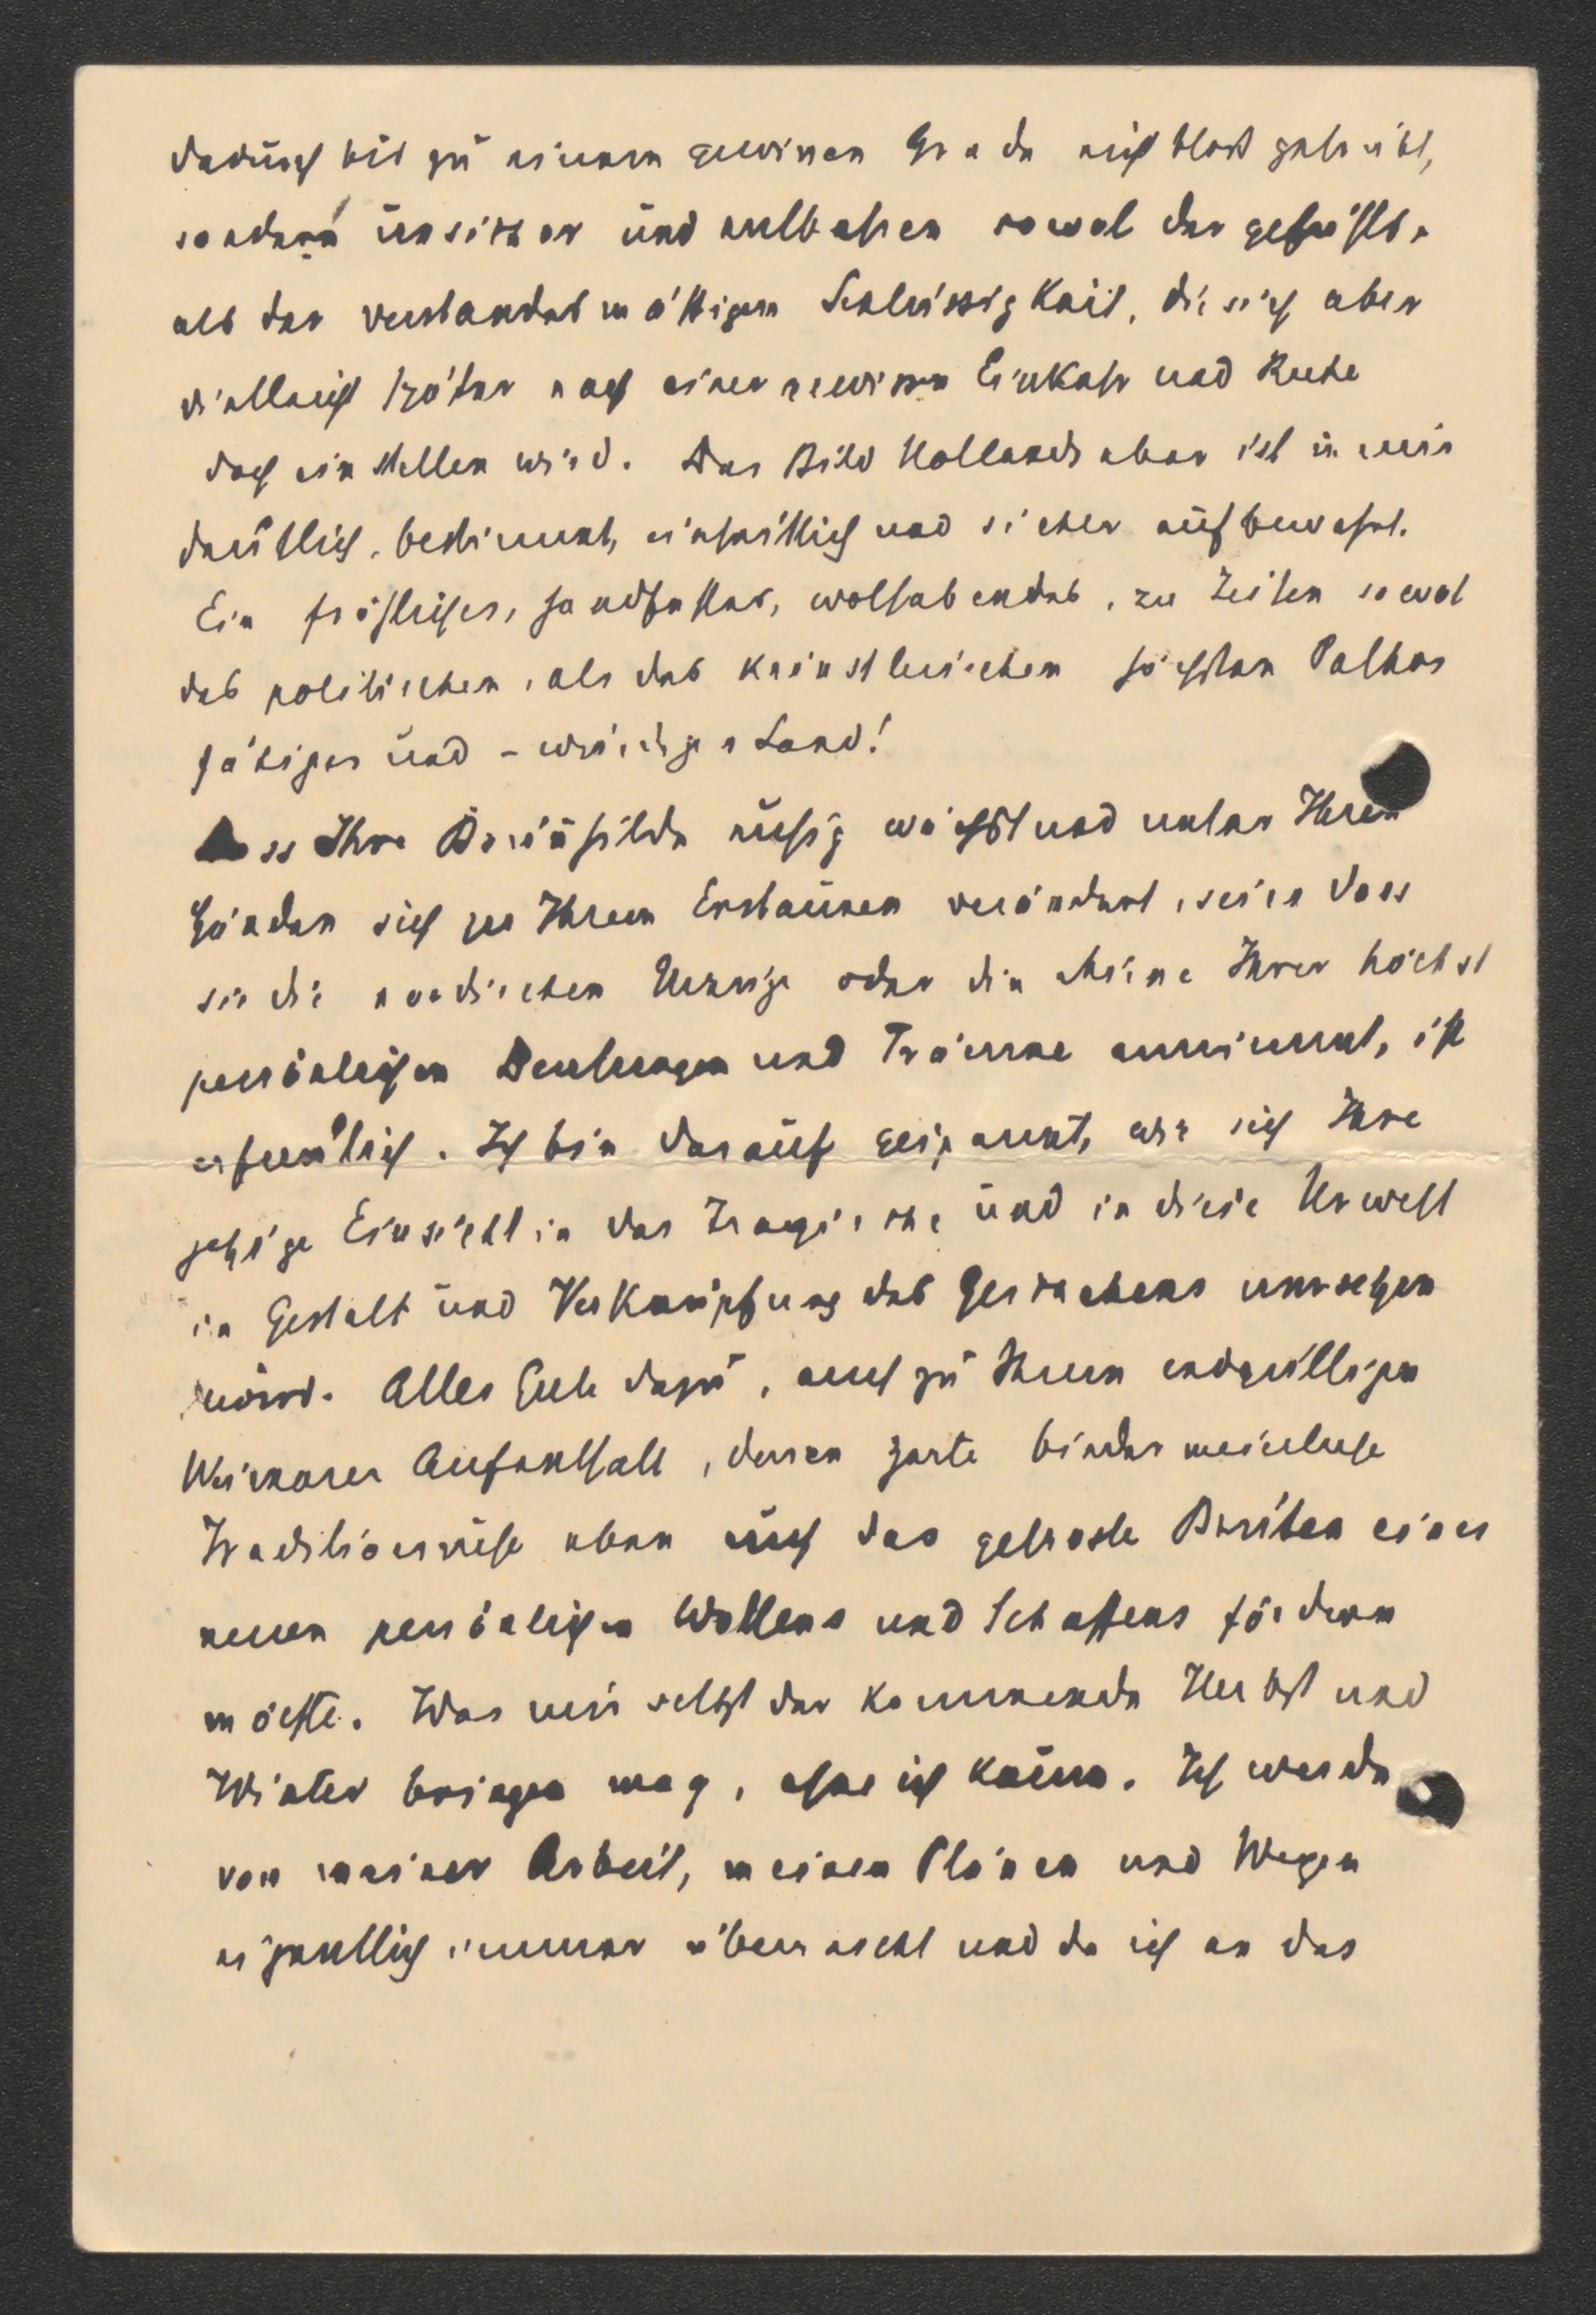 dadurch bis zu einem gewissen Grade nicht bloss getrübt,
sondern unsicher und entbehren sowol der gefühls-
als der verstandesmässigen Schlüssigkeit, die sich aber
vielleicht später nach einer gewissen Einkehr und Ruhe
doch einstellen wird. Das Bild Hollands aber ist in mir
deutlich, bestimmt, einheitlich und sicher aufbewahrt.
Ein fröhliches, handfestes, wolhabendes, zu Zeiten sowol
des politischen, als des künstlerischen höchsten Pathos
fähiges und - würdiges Land!
Dass Ihre Brünhilde ruhig wächst und unter Ihren
Händen sich zu Ihrem Erstaunen verändert, sei es dass
sie die nordischen Urzüge oder die Ihrer höchst
persönlichen Deutungen und Träume annimmt, ist
erfreulich. Ich bin darauf gespannt, wie sich Ihre
jetzige Einsicht in das Tragische und in diese Urwelt
in Gestalt und Verknüpfung des Geschehens umsetzen
wird. Alles Gute dazu, auch zu Ihrem endgültigen
Weimarer Aufenthalt, dessen zarte biedermeierliche
Traditionsruhe eben auch das getroste Brüten eines
neuen persönlichen Wollens und Schaffens fördern
möchte. Was mir selbst der kommende Herbst und
Winter bringen mag, ahne ich kaum. Ich werde
von meiner Arbeit, meinen Plänen und Wegen
eigentlich immer überrascht und da ich an das